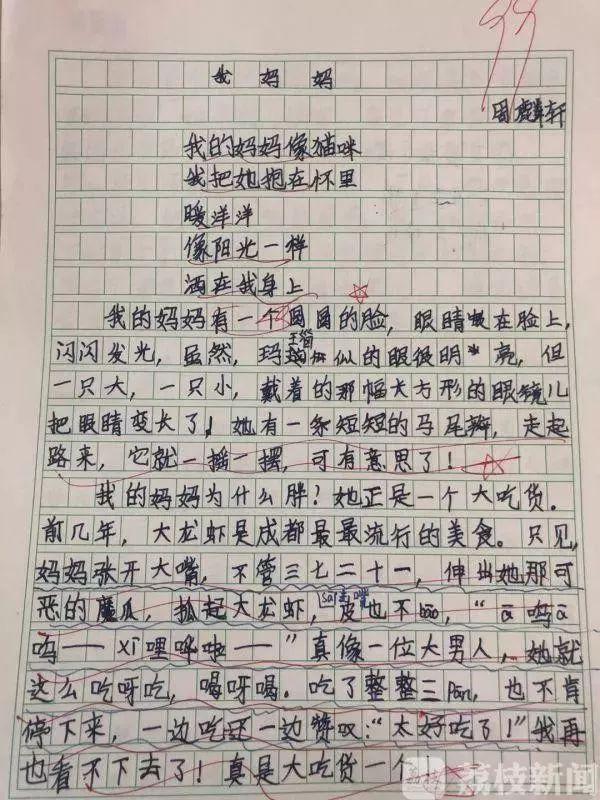 99
我妈妈
周麟轩
我的妈妈像猫咪
我把她抱在怀里
暖洋洋
像阳光一样
洒在我身上
我的妈妈有一个圆圆的脸，眼睛长在脸上，
闪闪发光，虽然，玛瑙似的眼很明亮，但
一只大，一只小，戴着的那幅大方形的眼镜儿
把眼睛变长了！她有一条短短的马尾辫，走起
路来，它就一摇一摆，可有意思了！
我的妈妈为什么胖？她正是一个大吃货。
前几年，大龙虾是成都最最流行的美食。只见，
妈妈张开大嘴，不管三七二十一，伸出她那可
恶的魔爪，抓起大龙虾，皮也不bāo，“ā呜ā
呜——xī哩哗啦——”真像一位大男人，她就
这么吃呀吃，喝呀喝。吃了整整三pán，也不肯
停下来，一边吃还一边赞叹：“太好吃了！”我再
也看不下去了！真是大吃货一个
荔枝新闻